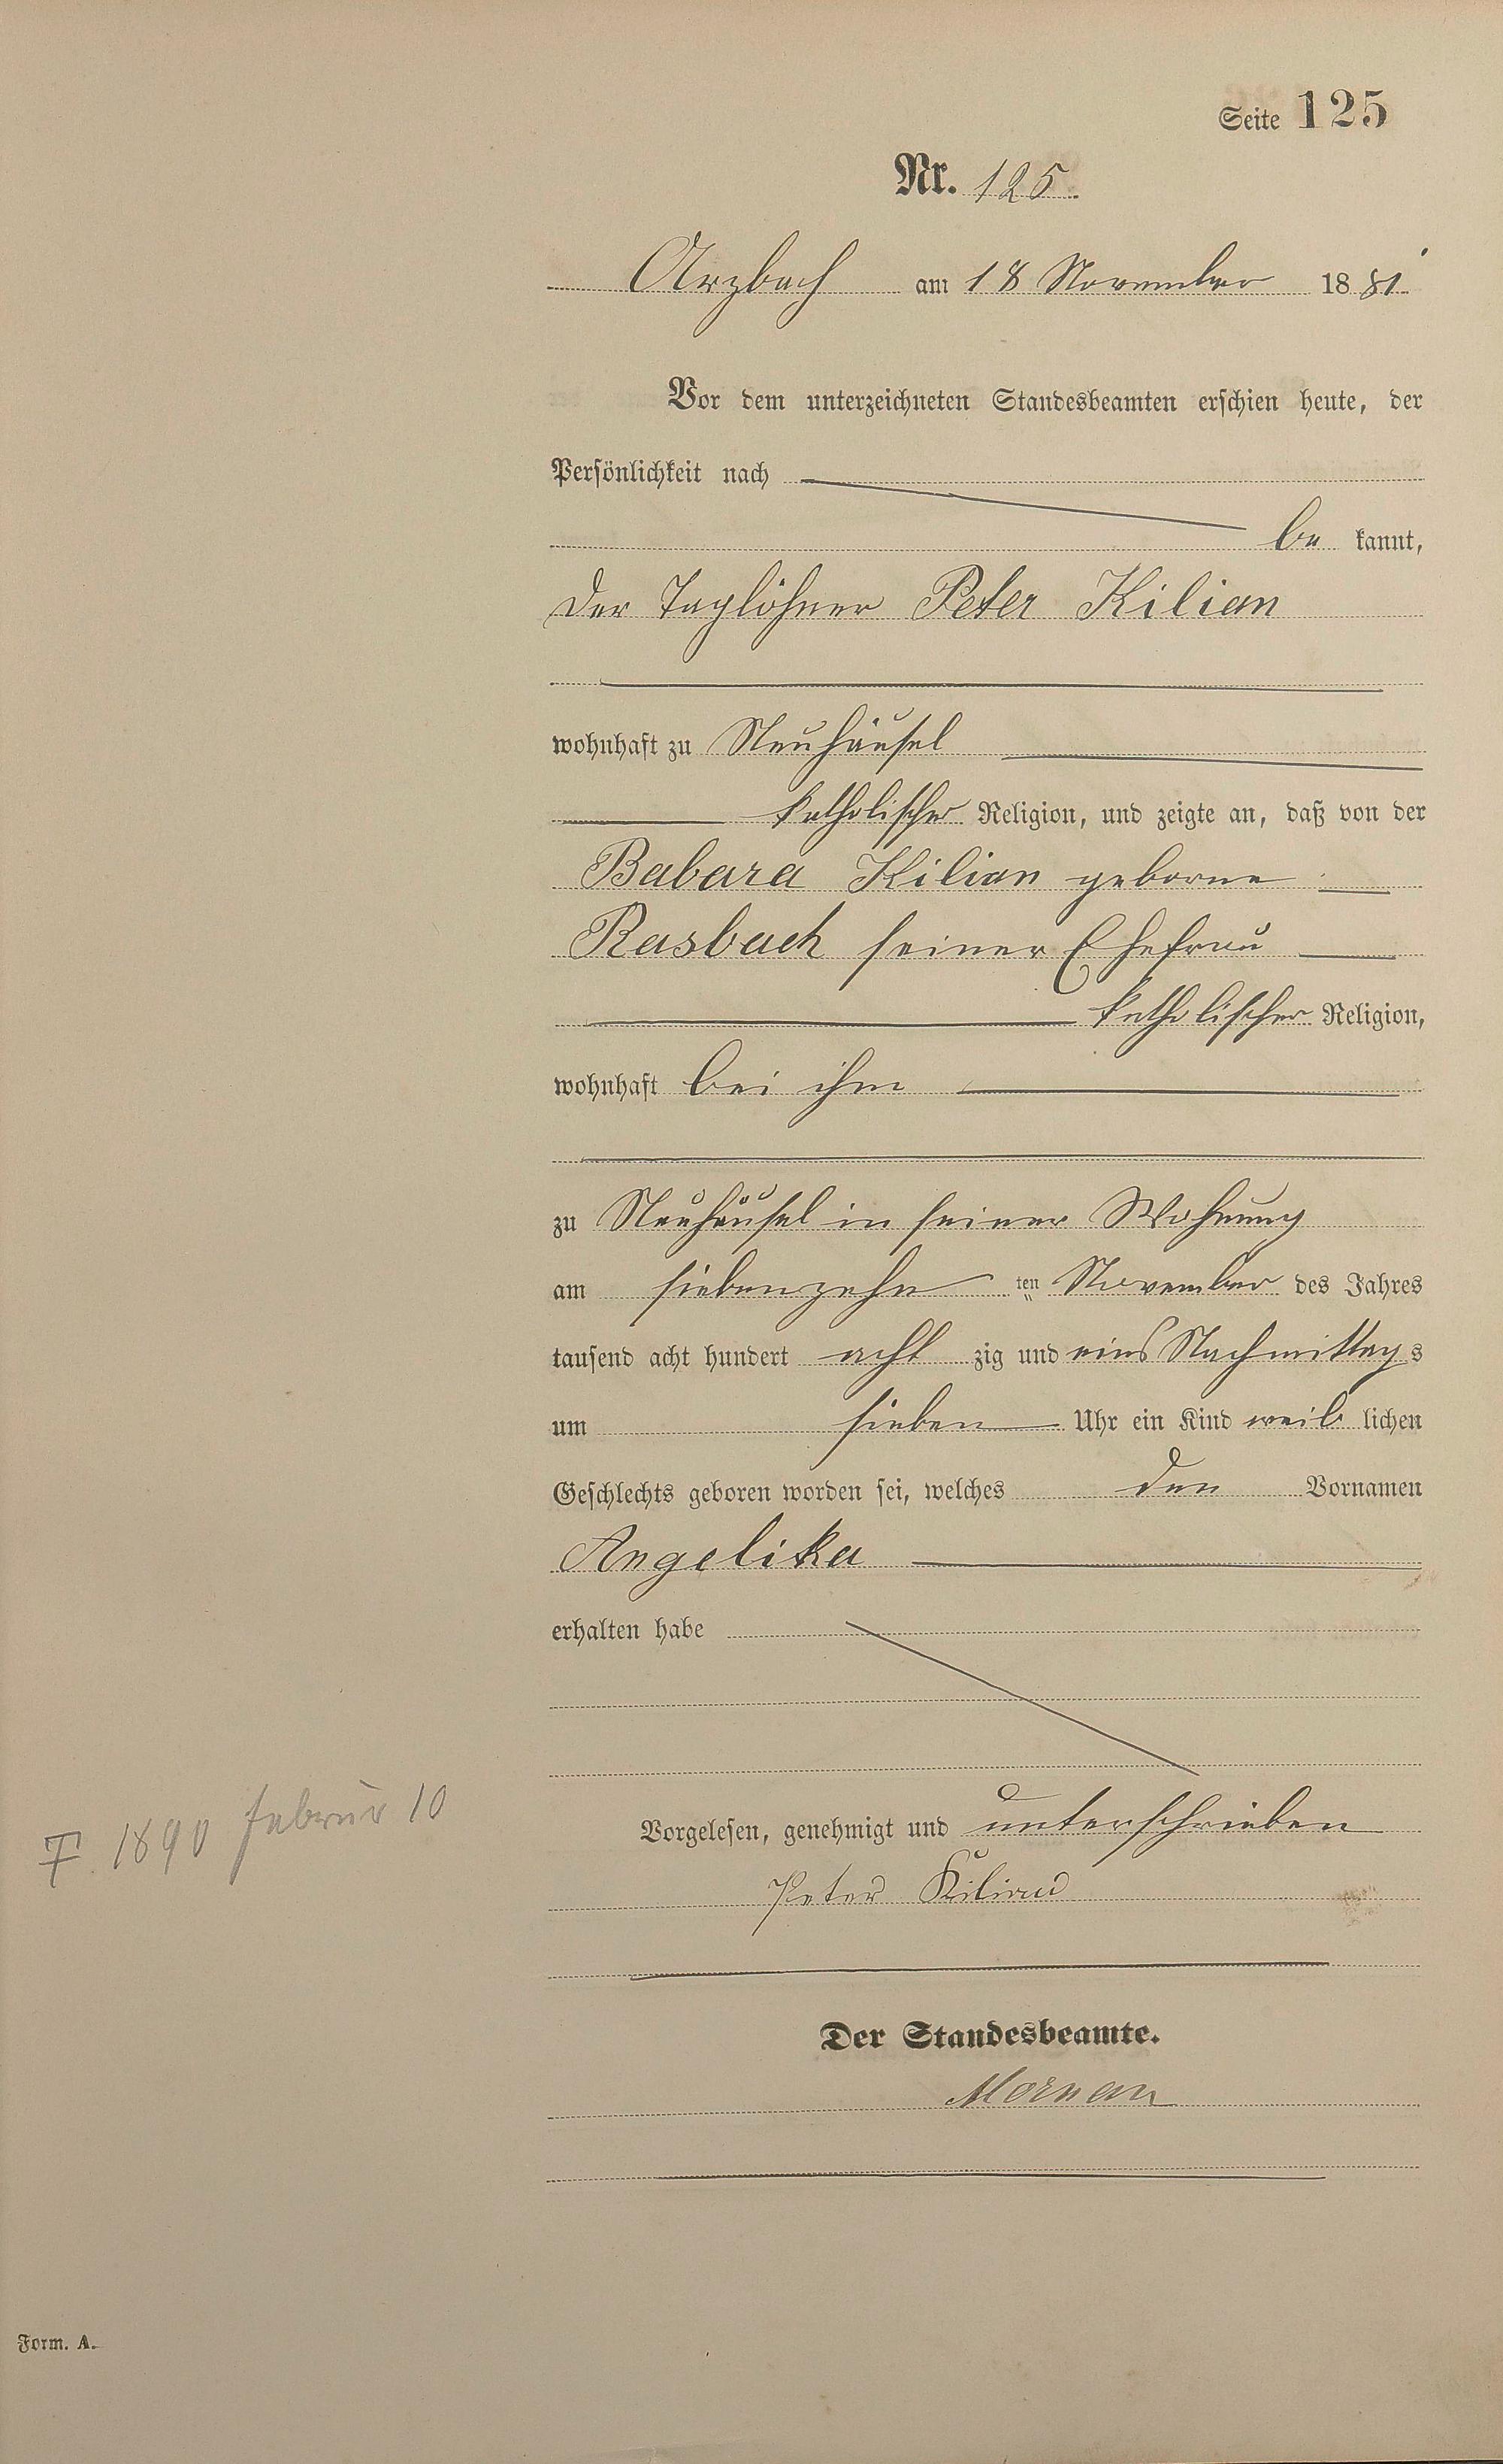 Seite 125
Nr. 125.
Arzbach am 18 November 1881
Vor dem unterzeichneten Standesbeamten erschien heute, der
Persönlichkeit nach
be kannt,
der Taglöhner Peter Kilian
wohnhaft zu Neuhäusel
katholischer Religion, und zeigte an, daß von der
Babara Kilian geborne
Rasbach seiner Ehefrau
katholischer Religion,
wohnhaft bei ihm
zu Neuhäusel in seiner Wohnung
am siebenzehn ten November des Jahres
tausend acht hundert acht zig und eins Nachmittags
um sieben Uhr ein Kind weib lichen
Geschlechts geboren worden sei, welches den Vornamen
Angelika
erhalten habe
† 1890 Februar 10
Vorgelesen, genehmigt und unterschrieben
Peter Kilian
Der Standesbeamte.
Form. A.